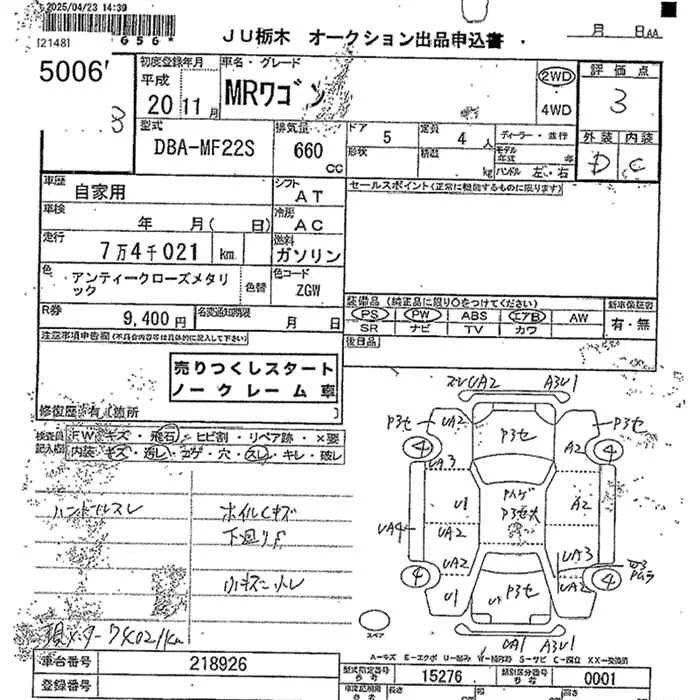 2025/04/23 14:39
[2148]
656*
JU栃木 オークション出品申込書
月 日AA
5006
初度登録年月
平成
20 11月
車名・グレード
MRワゴン
2WD
4WD
評価点
3
外装 内装
D C
型式
DBA-MF22S
排気量
660
CC
ドア 5
定員 4 人
形状
積載 kg
ディーラー・並行
モデル年式 年
ハンドル 左・右
車歴
自家用
シフト
AT
セールスポイント(正常に機能するものに限ります)
車検
年 月( 日)
冷房
AC
走行
7万4千021 km
燃料
ガソリン
色
アンティークローズメタリック
色替
色コード
ZGW
R券
9,400円
名変通知期限
月 日
装備品(純正品に限り○をつけてください)
PS PW ABS エアB AW
SR ナビ TV カワ
新車保証書
有・無
後日品
注意事項申告欄(不具合内容等は具体的に記入して下さい)
売りつくしスタート
ノークレーム車
修復歴 有 箇所
検査員記入欄
FW キズ・飛石・ヒビ割・リペア跡・×要
内装・キズ・汚レ・コゲ・穴・スレ・キレ・破レ
ハンドルスレ
ホイルCキズ
下廻りF
小キズニハレ
車台番号 218926
登録番号
A1
P3セ
UA2
4
A2
UA3
U1
UA4
P3セ大
U3
UA1 A3U1
スペア
A=キズ E=エクボ U=凹み W=補修跡 S=サビ C=腐食 XX=交換済
型式指定番号 参考 15276
類別区分番号 参考 0001